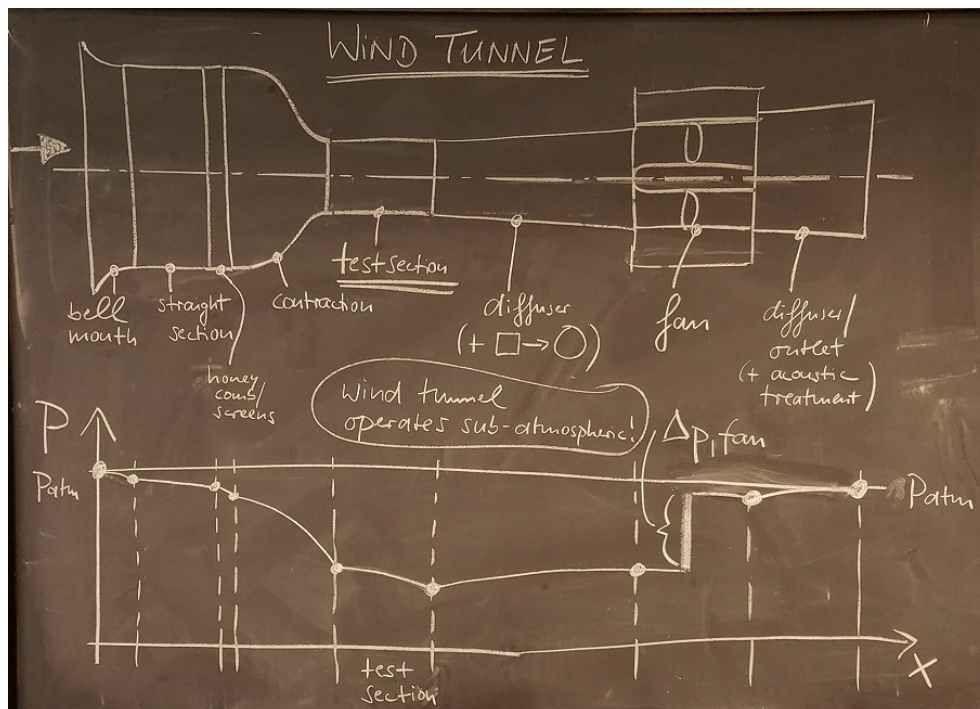 WIND TUNNEL
bell
mouth
straight
section
honey
comb/
screens
contraction
test section
diffuser
(+ □→○)
fan
diffuser/
outlet
(+ acoustic
treatment)
Wind tunnel
operates sub-atmospheric!
Δp,fan
P
Patm
Patm
test
section
x